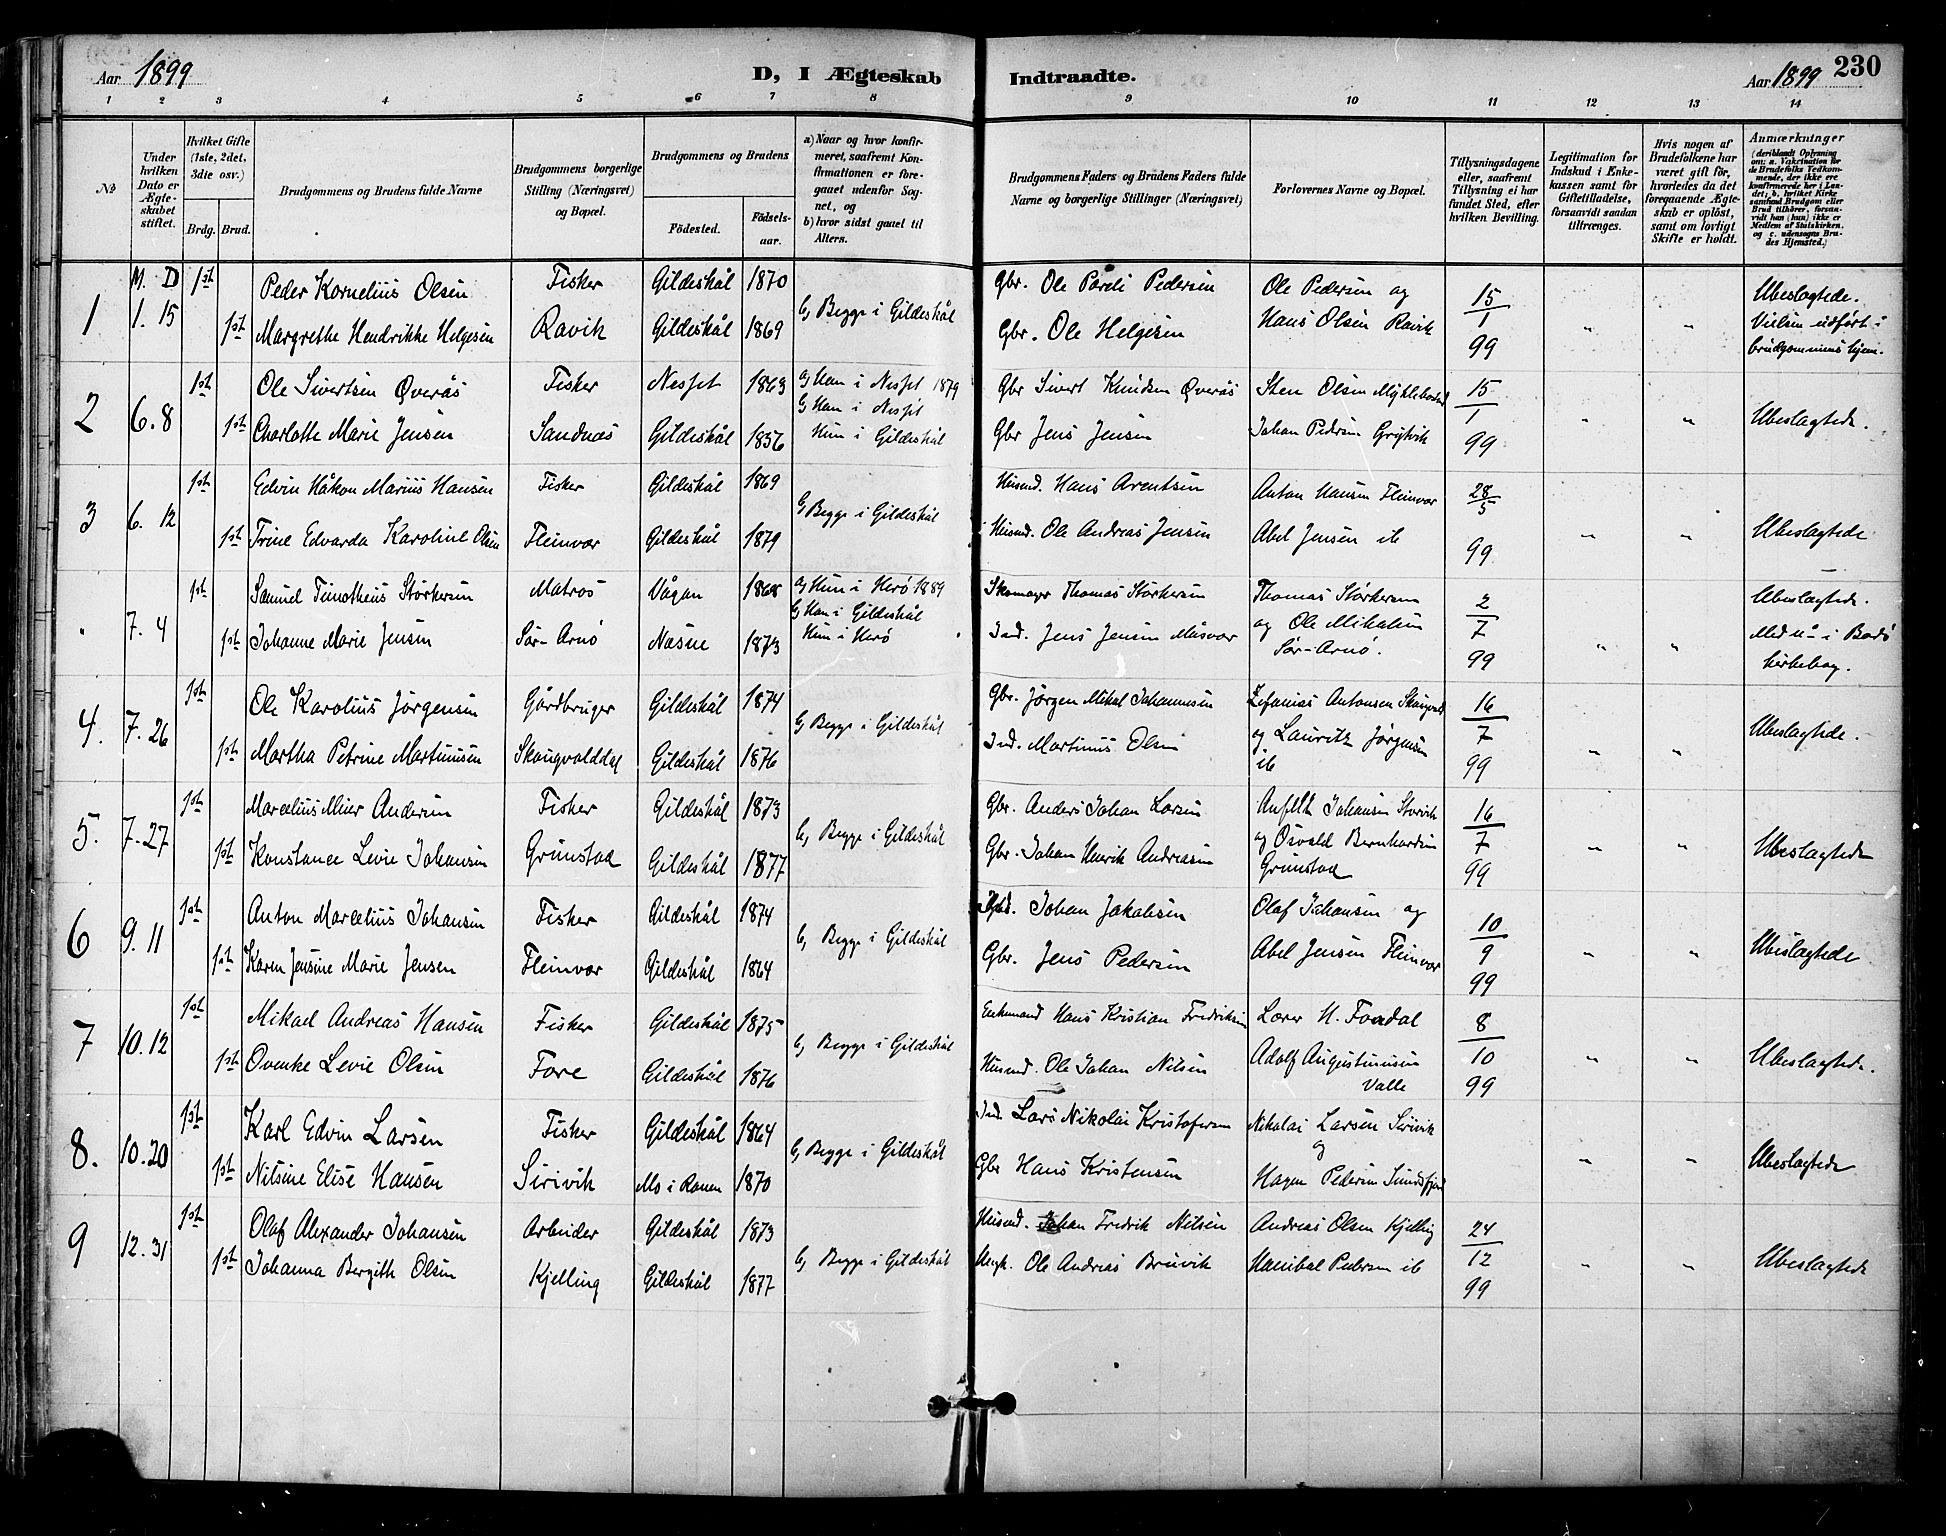 Aar 1899 D, I Ægteskab Indtraadte. Aar 1899 230
1 2 3 4 5 6 7 8 9 10 11 12 13 14
No
Under hvilken Dato er Ægteskabet stiftet.
Hvilket Gifte (1ste, 2det, 3die osv.)
Brdg. Brud.
Brudgommens og Brudens fulde Navne
Brudgommens borgerlige Stilling (Næringsvei) og Bopæl.
Brudgommens og Brudens
Födested. Födsels-aar.
a) Naar og hvor konfirmeret, saafremt Konfirmationen er foregaaet udenfor Sognet, og
b) hvor sidst gaaet til Alters.
Brudgommens Faders og Brudens Faders fulde Navne og borgerlige Stillinger (Næringsvei)
Forlovernes Navne og Bopæl.
Tillysningsdagene eller, saafremt Tillysning ei har fundet Sted, efter hvilken Bevilling.
Legitimation for Indskud i Enkekassen samt for Giftetilladelse, forsaavidt saadan tiltrænges.
Hvis nogen af Brudefolkene har været gift för, hvorledes da det foregaaende Ægteskab er oplöst, samt om lovligt Skifte er holdt.
Anmærkninger (deriblandt Oplysning om: a. Vakcination för de Brudefolks Vedkommende, der ikke ere konfirmerede her i Landet; b. hvilket Kirkesamfund Brudgom eller Brud tilhörer, forsaavidt han (hun) ikke er Medlem af Statskirken, og c. udensogns Brudes Hjemsted.)
M. D
1 1. 15 1ste Peder Kornelius Olsen Fisker Gildeskål 1870 b, Begge i Gildeskål Gbr. Ole Pareli Pedersen Ole Pedersen og 15/1 99 " " Ubeslægtede. Vielsen udført i brudgommens hjem.
1ste Margrethe Hendrikke Helgesen Ravik Gildeskål 1869 Gbr. Ole Helgesen Hans Olsen Ravik
2 6. 8 1ste Ole Sivertsen Øverås Fisker Nesset 1863 a, Ham i Nesset 1879 b, Ham i Nesset Gbr Sivert Knudsen Øverås Sten Olsen Myklebostad 15/1 99 " " Ubeslægtede.
1ste Charlotte Marie Jensen Sandnæs Gildeskål 1856 Hun i Gildeskål Gbr Jens Jensen Johan Pedersen Grytvik
3 6. 12 1ste Edvin Håkon Marius Hansen Fisker Gildeskål 1869 b, Begge i Gildeskål Husmd. Hans Arentsen Anton Hansen Fleinvær 28/5 99 " " Ubeslægtede
1ste Trine Edvarda Karoline Olsen Fleinvær Gildeskål 1879 Husmd. Ole Andreas Jensen Abel Jensen ib
" 7. 4 1ste Samuel Timotheus Størkersen Matros Vågan 1868 a, Hun i Herø 1889 b, Ham i Gildeskål Skomager Thomas Størkersen Thomas Størkersen 2/7 99 " " Ubeslægtede.
1ste Johanne Marie Jensen Sør-Arnø Næsne 1873 Hun i Herø Ind. Jens Jensen Måsvær og Ole Mikalsen Sør-Arnø. Med no - i Bodø kirkebog.
4. 7. 26 1ste Ole Karolius Jørgensen Gårdbruger Gildeskål 1874 b, Begge i Gildeskål Gbr. Jørgen Mikal Johannesen Zefanias Antonsen 16/7 99 " " Ubeslægtede.
1ste Martha Petrine Martinusen Skaugvolddal Gildeskål 1876 Ind. Martinus Olsen og Lauritz Jørgensen ib
5. 7. 27 1ste Marcelius Meier Andersen Fisker Gildeskål 1873 b, Begge i Gildeskål Gbr. Anders Johan Larsen Johansen Storvik 16/7 99 " " Ubeslægtede
1ste Konstance Levie Johansen Grimstad Gildeskål 1877 Gbr. Johan Henrik Andreasen og Osvald Bernhardsen Grimstad
6 9. 11 1ste Anton Marcelius Johansen Fisker Gildeskål 1874 b, Begge i Gildeskål Johan Jakobsen Olaf Johansen og 10/9 99 " " Ubeslægtede
1ste Karen Jensine Marie Jensen Fleinvær Gildeskål 1864 Gbr. Jens Pedersen Abel Jensen Fleinvær
7 10. 12 1ste Mikael Andreas Hansen Fisker Gildeskål 1875 b, Begge i Gildeskål Enkemand Hans Kristian Fredriksen Lærer H. Fondal 8/10 99 " " Ubeslægtede.
1ste Ovenke Levie Olsen Fore Gildeskål 1876 Husmd. Ole Johan Nilsen Adolf Augustinusen Valle
8. 10. 20 1ste Karl Edvin Larsen Fisker Gildeskål 1864 b, Begge i Gildeskål Ind. Lars Nikolai Kristofersen Nikolai Larsen Sirivik og " " Ubeslægtede
1ste Nilsine Elise Hansen Sirivik Mo i Ranen 1870 Gbr Hans Kristensen Hagen Pedersen Sundsfjord
9 12. 31 1ste Olaf Alexander Johansen Arbeider Gildeskål 1873 b, Begge i Gildeskål Husmd. Johan Fredrik Nilsen Andreas Olsen Kjelling 24/12 99 " " Ubeslægtede
1ste Johanna Bergith Olsen Kjelling Gildeskål 1877 Ole Andreas Bruvik Hanibal Pedersen ib